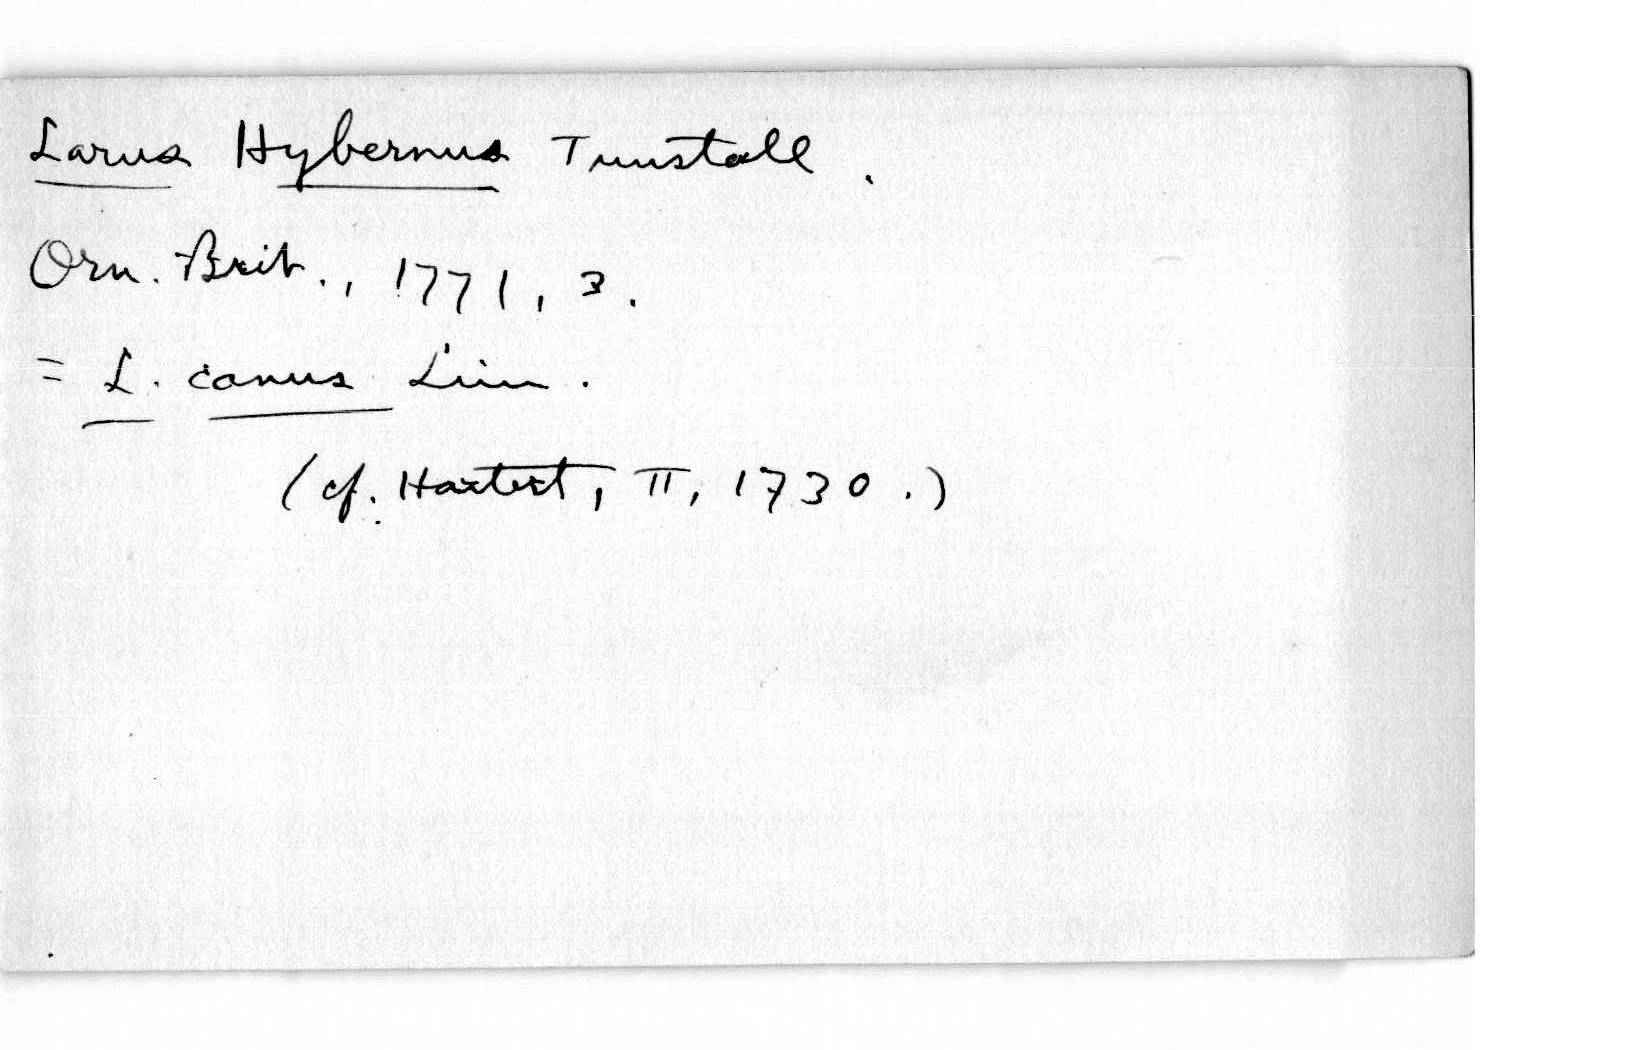 Larus Hybernus Tunstall.
Orn. Brit., 1771, 3.
= L. canus Linn.
(cf. Hartert, II, 1730.)